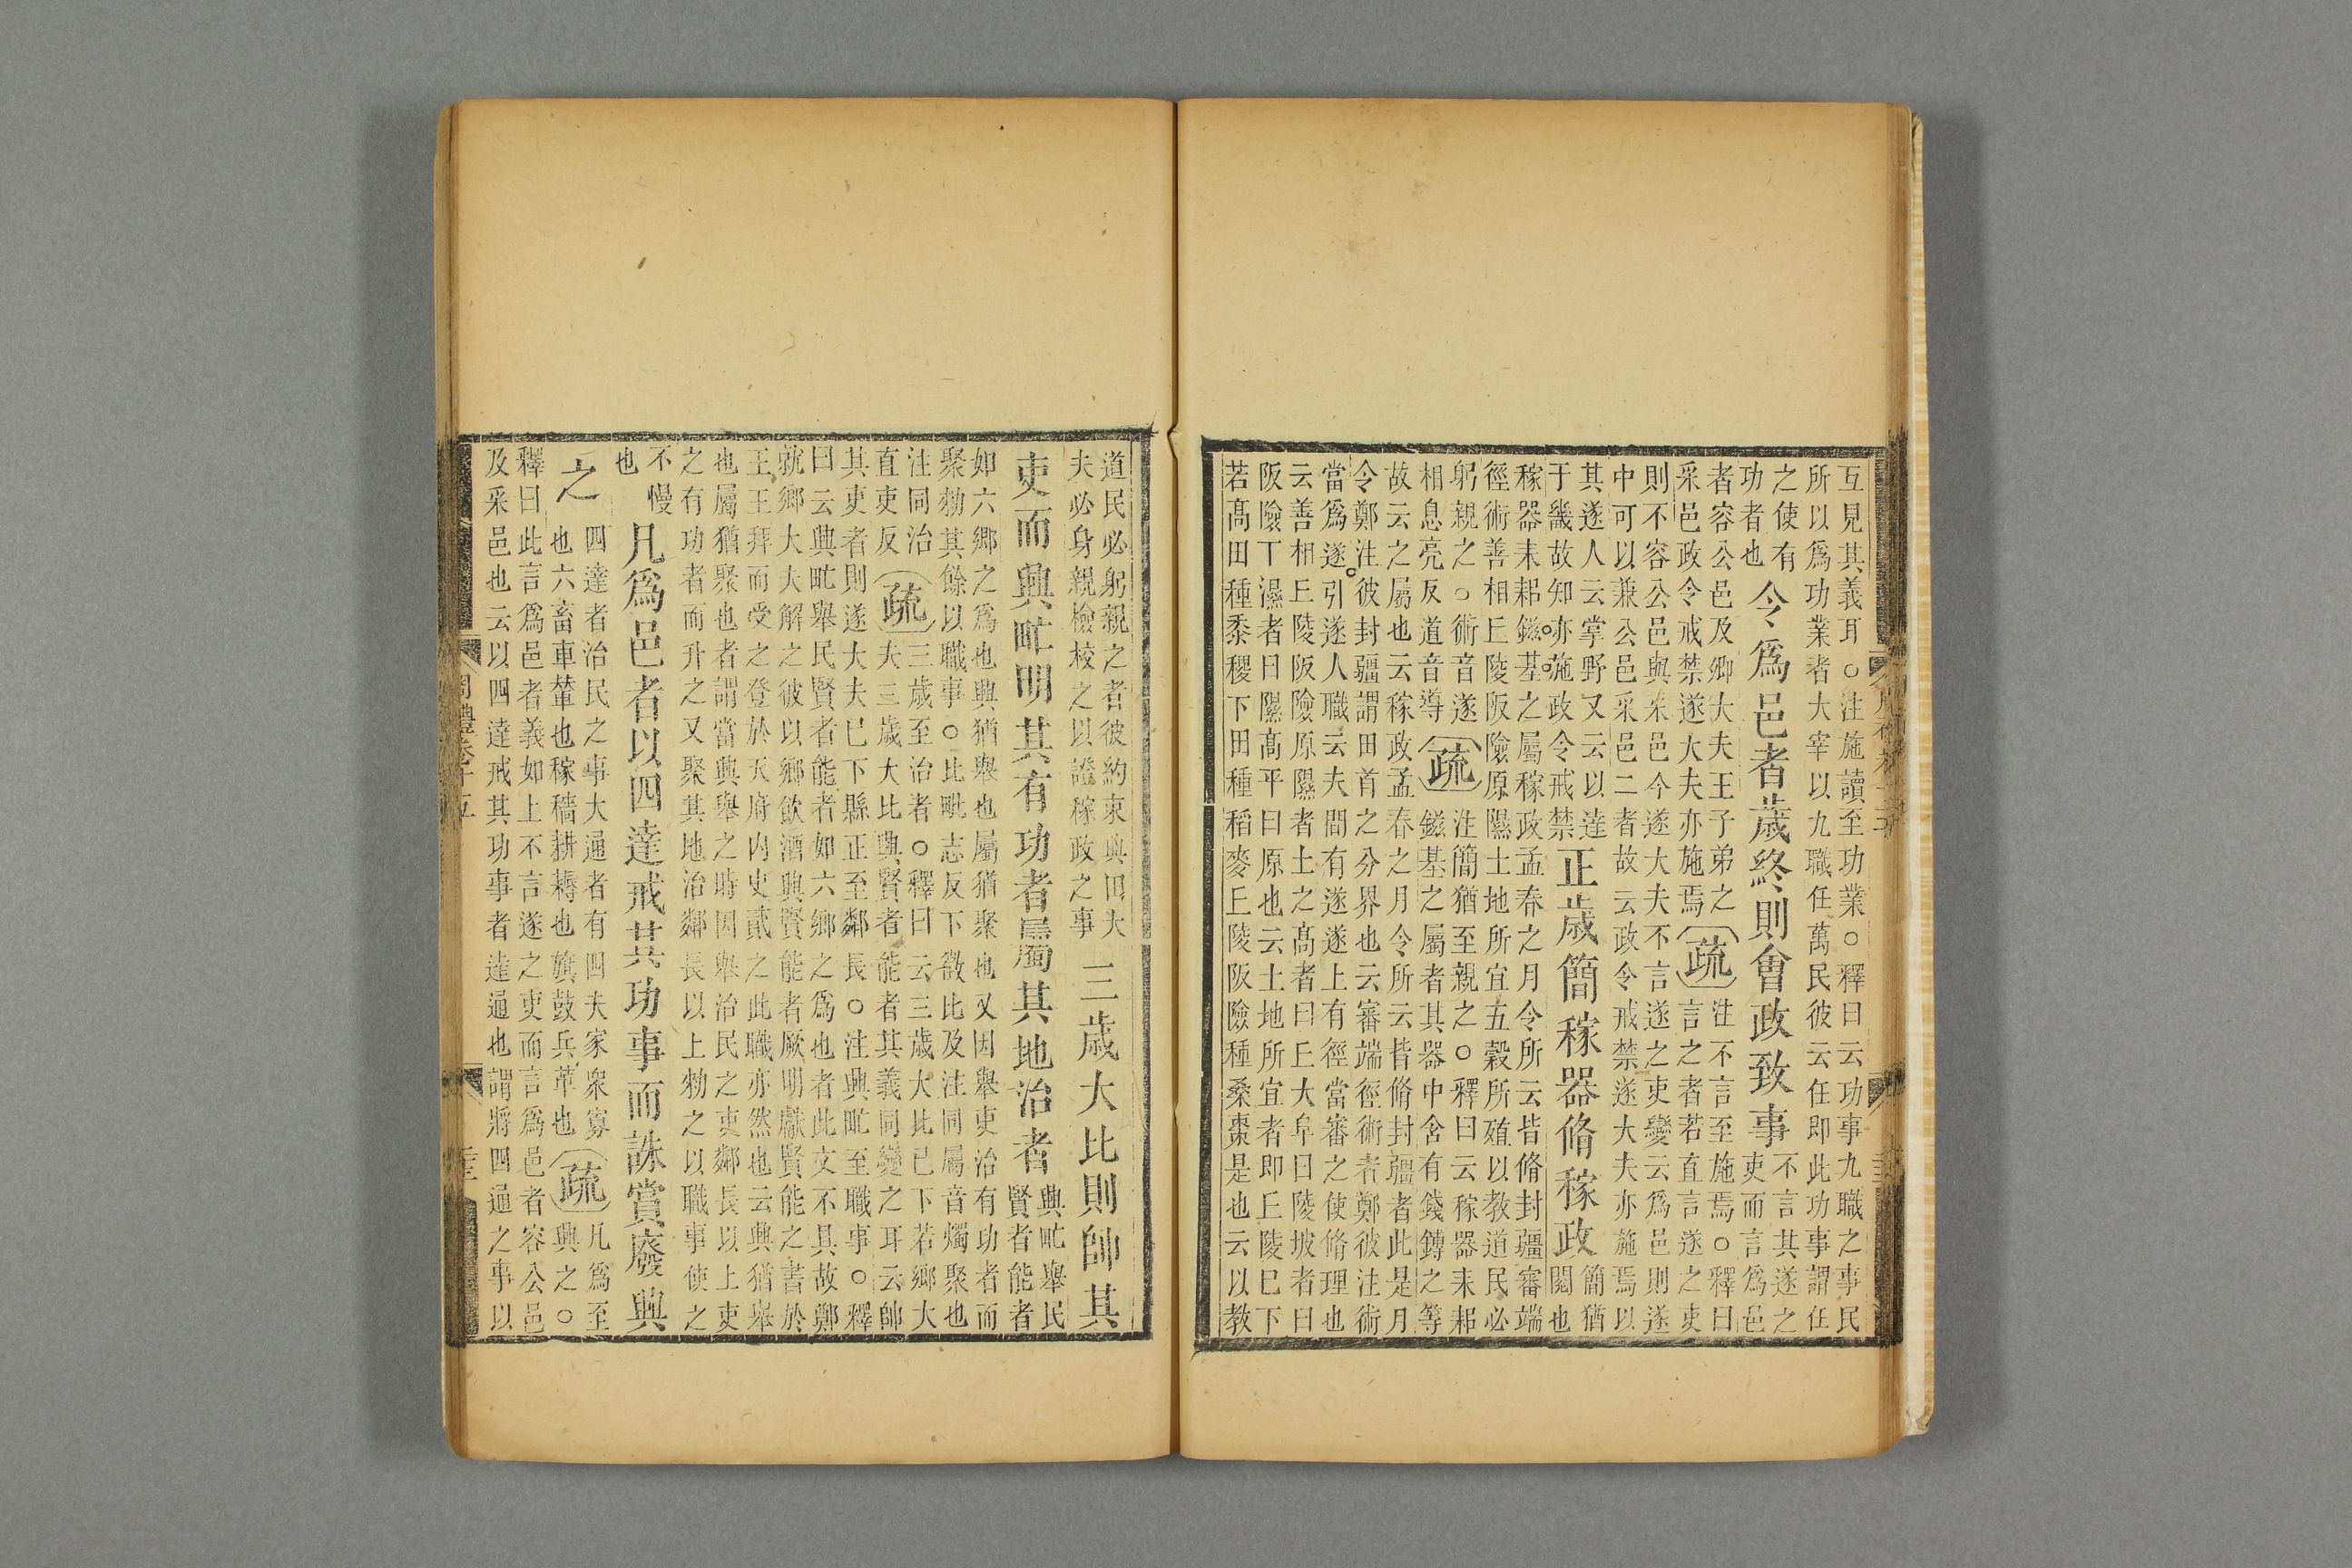 互見其義耳○注施讀至功業○釋曰云功事九職之事民
所以爲功業者大宰以九職任萬民彼云任即此功事謂任
之使有
功者也
令爲邑者歲終則會政致事
不言其遂之
吏而言爲邑
者容公邑及卿大夫王子弟之
采邑政令戒禁遂大夫亦施焉
疏
注不言至施焉○釋曰
言之者若直言遂之吏
則不容公邑與采邑今遂大夫不言遂之吏變云爲邑則遂
中可以兼公邑采邑二者故云政令戒禁遂大夫亦施焉以
其遂人云掌野又云以達
于畿故知亦施政令戒禁
正歲簡稼器脩稼政
簡猶
閱也
稼器耒耜鎡基之屬稼政孟春之月令所云皆脩封疆審端
徑術善相丘陵阪險原隰土地所宜五穀所殖以教道民必
躬親之○術音遂
相息亮反道音導
疏
注簡猶至親之○釋曰云稼器耒耜
鎡基之屬者其器中含有錢鎛之等
故云之屬也云稼政孟春之月令所云皆脩封疆者此是月
令鄭注彼封疆謂田首之分界也云審端徑術者鄭彼注術
當爲遂引遂人職云夫間有遂遂上有徑當審之使脩理也
云善相丘陵阪險原隰者土之高者曰丘大阜曰陵坡者曰
阪險下濕者曰隰高平曰原也云土地所宜者即丘陵已下
若高田種黍稷下田種稻麥丘陵阪險種桑棗是也云以教
道民必躬親之者彼約束與田大
夫必身親檢校之以證稼政之事
三歲大比則帥其
吏而興甿明其有功者屬其地治者
興甿舉民
賢者能者
如六鄉之爲也興猶舉也屬猶聚也又因舉吏治有功者而
聚勑其餘以職事○比毗志反下徵比及注同屬音燭聚也
注同治
直吏反
疏
三歲至治者○釋曰云三歲大比已下若鄉大
夫三歲大比興賢者能者其義同變之耳云帥
其吏者則遂大夫已下縣正至鄰長○注興甿至職事○釋
曰云興甿舉民賢者能者如六鄉之爲也者此文不具故鄭
就鄉大夫解之彼以鄉飲酒興賢能者厥明獻賢能之書於
王王拜而受之登於天府內史貳之此職亦然也云興猶舉
也屬猶聚也者謂當興舉之時因舉治民之吏鄰長以上吏
之有功者而升之又聚其地治鄰長以上勑之以職事使之
不慢
也
凡爲邑者以四達戒其功事而誅賞廢興
之
四達者治民之事大通者有四夫家衆寡
也六畜車輦也稼穡耕耨也旗鼓兵革也
疏
凡爲至
興之○
釋曰此言爲邑者義如上不言遂之吏而言爲邑者容公邑
及采邑也云以四達戒其功事者達通也謂將四通之事以